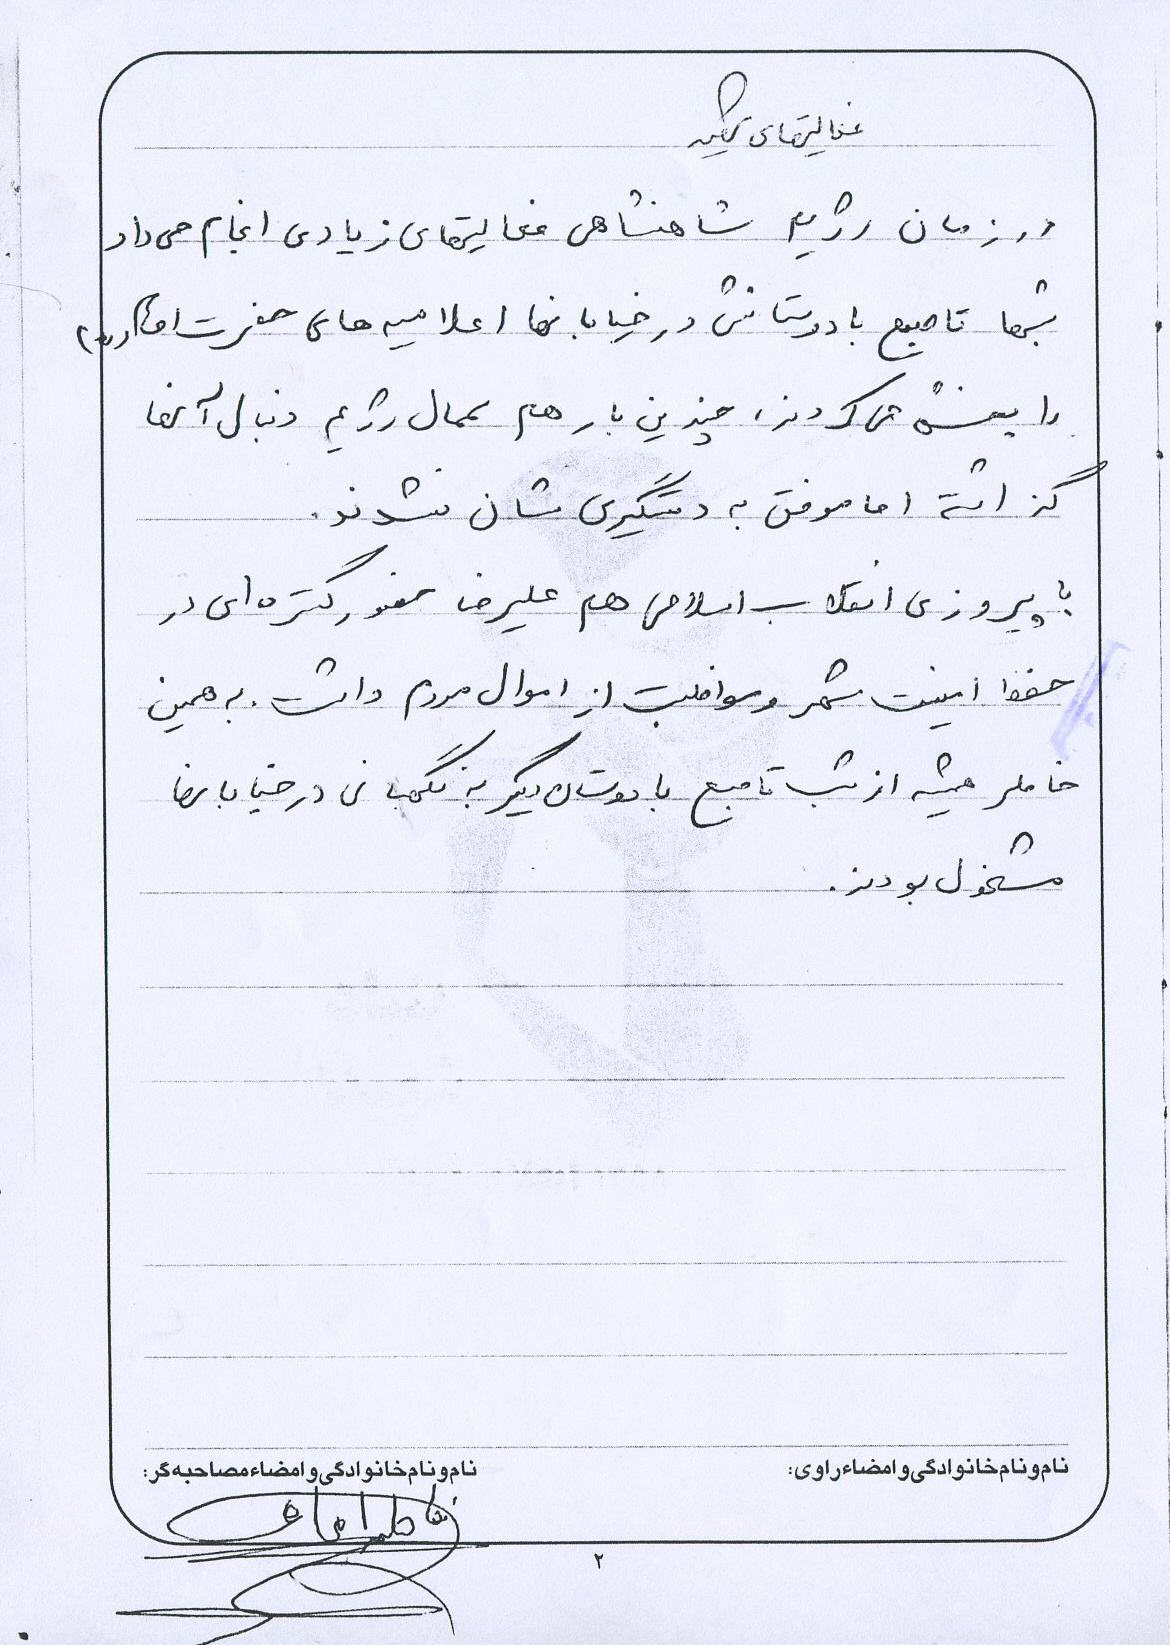 فعالیتهای
در زمان رژیم شاهنشاهی فعالیتهای زیادی انجام می داد
شبها تا صبح با دوستانش در خیابانها اعلامیه های حضرت امام (ره)
را پخش می کردند، چندین بار هم عمال رژیم دنبال آنها
گذاشته اما موفق به دستگیری شان نشدند.
با پیروزی انقلاب اسلامی هم علیرضا حضور گسترده ای در
حفظ امنیت شهر و مواظبت از اموال مردم داشت. به همین
خاطر همیشه از شب تا صبح با دوستان دیگر به نگهبانی در خیابانها
مشغول بودند.
نام و نام خانوادگی و امضاء راوی:
نام و نام خانوادگی و امضاء مصاحبه گر:
۲